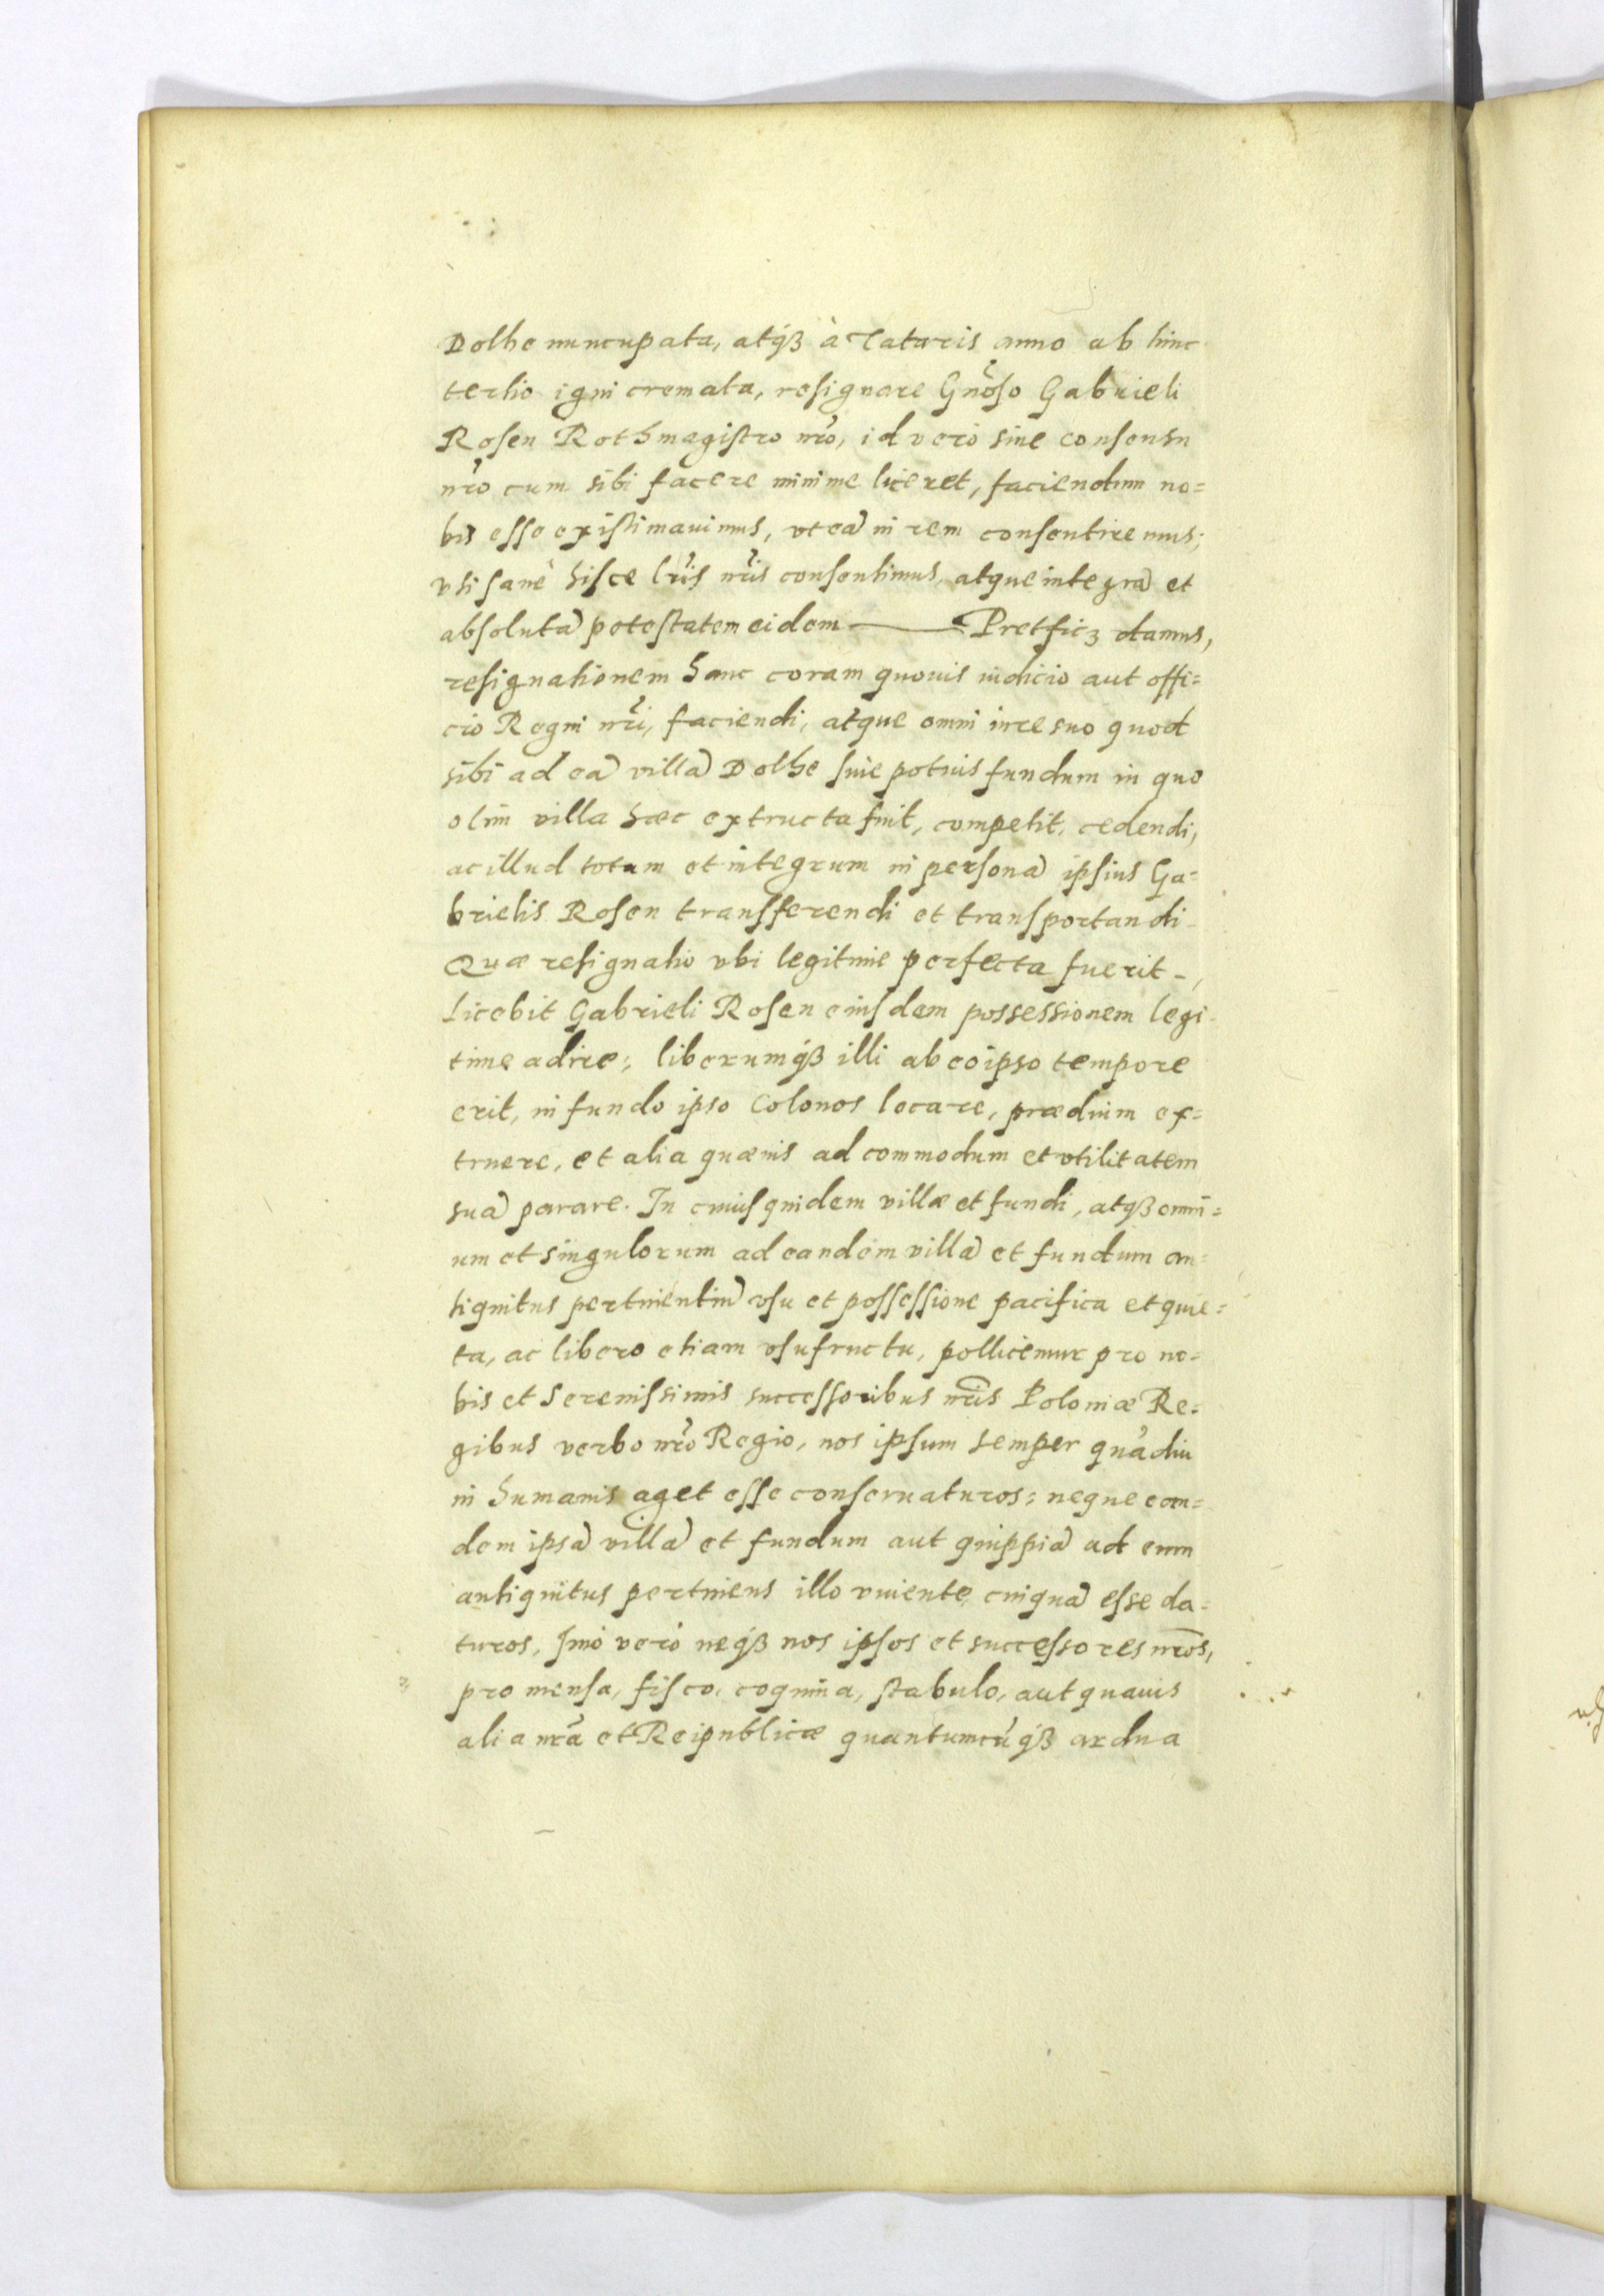 Dolhe nuncupata, atq́ꝫ à Tataris anno ab hinc
tertio igni cremata, resignare Gnõso Gabrieli
Rosen Rothmagistro nrõ, id verò sine consensu
nrõ cum sibi facere minime liceret, faciendum no=
bis esse existimauimus, vt eã in rem consentiremus;
vti sanè hisce lrĩs nrĩs consentimus, atque integrã et
absolutã potestatem eidem —— Pretficz damus,
resignationem hanc coram quouis iudicio aut offi=
cio Regni nrĩ, faciendi, atque omni iure suo quod
sibi ad eã villã Dolhe siue potius fundum in quo
olim villa haec extructa fuit, competit, cedendi,
ac illud totum et integrum in personã ipsius Ga=
brielis Rosen transferendi et transportandi
Quæ resignatio vbi legitime perfecta fuerit,
licebit Gabrieli Rosen eiusdem possessionem legi-
time adire; liberumq́ꝫ illi ab eo ipso tempore
erit, in fundo ipso Colonos locare, prædium ex=
truere, et alia quæuis ad commodum et vtilitatem
suã parare. In cuius quidem villæ et fundi, atqꝫ omni=
um et singulorum ad eandem villã et fundum an=
tiquitus pertinentiũ vsu et possessione pacifica et quie=
ta, ac libero etiam vsufructu, pollicemur pro no=
bis et Serenissimis successoribus nrĩs Poloniæ Re=
gibus verbo nrõ Regio, nos ipsum semper quãdiu
in humanis aget esse conseruaturos; neque ean=
dem ipsã villã et fundum aut quippiã ad eum
antiquitus pertinens illo viuente cuiquã esse da=
turos, Imò verò neq́ꝫ nos ipsos et successores nrõs,
pro mensa, fisco, coquina, stabulo, aut quauis
alia nrã et Reipublicæ quantumcũq́ꝫ ardua